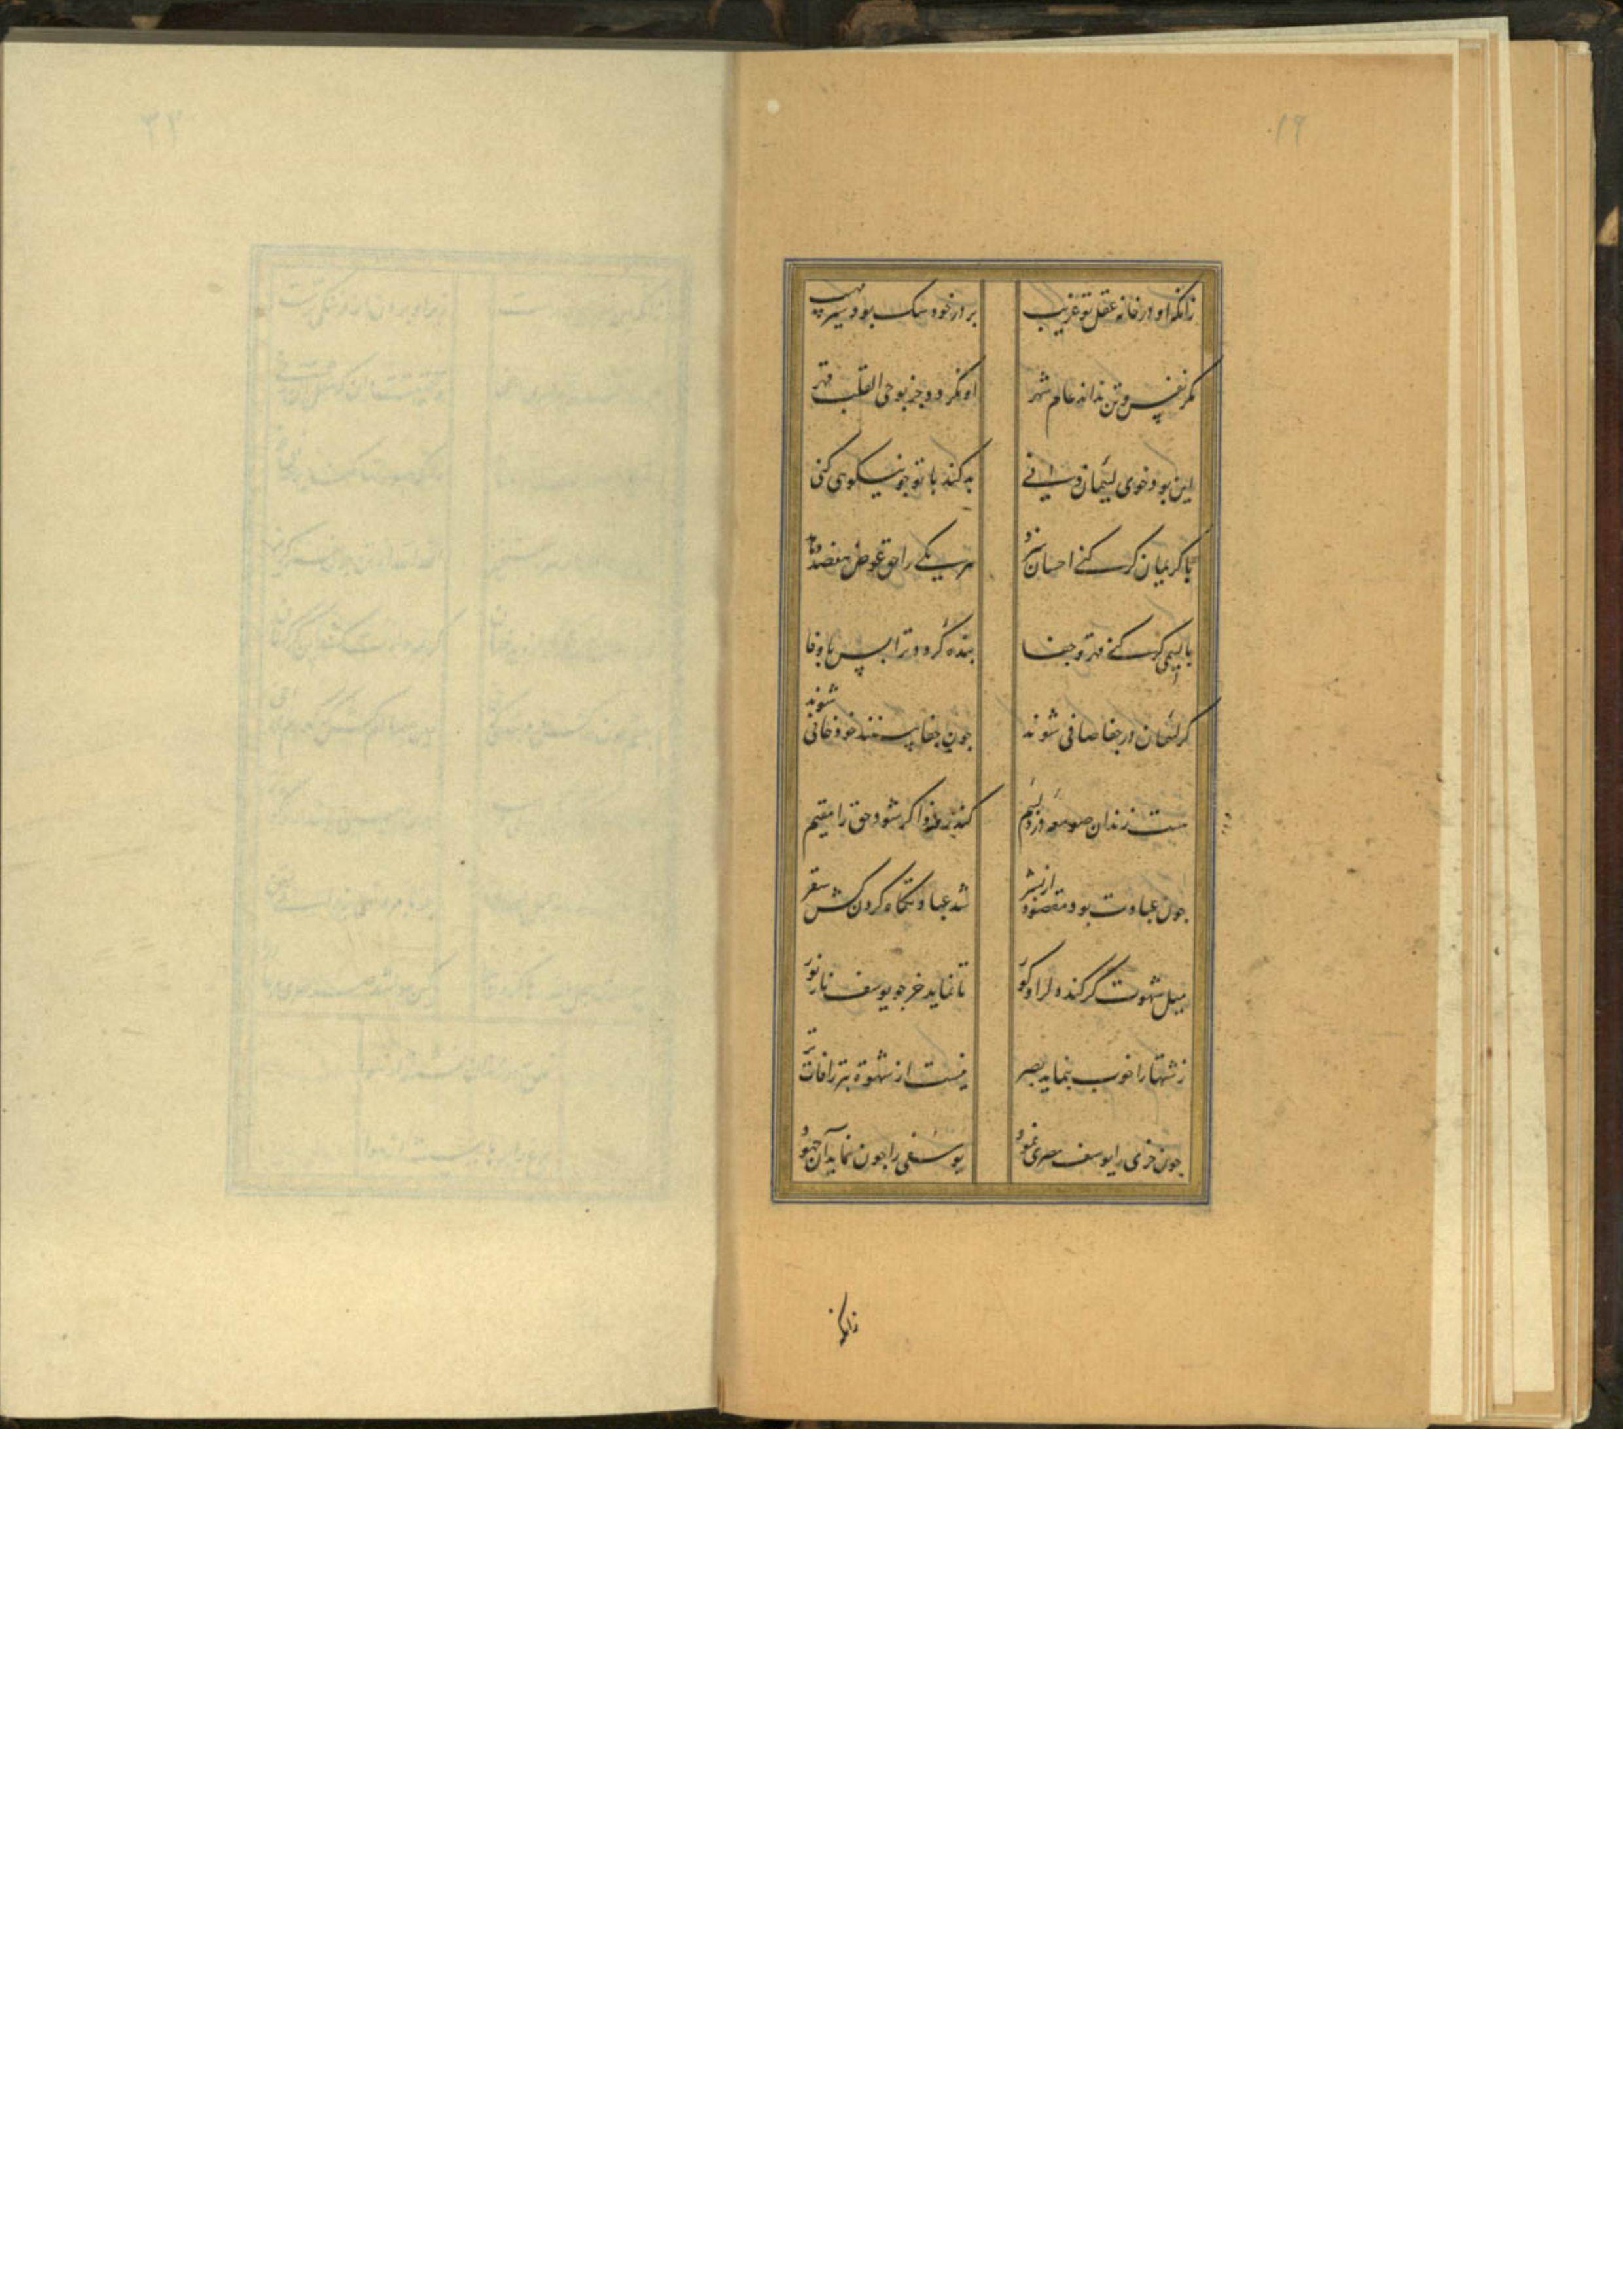 ۱۶
زانکه او در خانه عقل تو غریب
بر در خود سگ بود شیر مهیب
مکر نفس و تن نداند عام شهر
او نکردد جز بوحی القلب قهر
این بود خوی لئیمان دنی
بد کند با تو چو نیکویی کنی
با کریمان کر کنی احسان سزد
مر یکی را حق عوض هفتصد دهد
با لئیمی کر کنی قهر و جفا
بنده گردد ترا بس با وفا
کر لئیمان در جفا صافی شوند
چون جفا بینند خود جافی شوند
هست زندان صومعه دزد لئیم
کندرو ذاکر شود حق را مقیم
چون عبادت بود مقصود از بشر
شد عبادتگاه گردن کش سقر
میل شهوت کر کند دل را و کور
تا نماید خر چو یوسف نار نور
زشتها را خوب بنماید بصر
نیست از شهوة بتر زافات تر
چون خری را یوسف مصری نمود
یوسفی را چون نماید آن جهود
زانکه